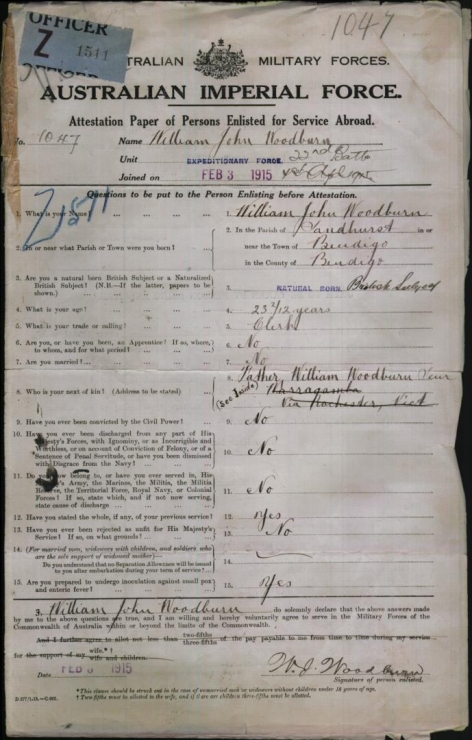 1047
OFFICER
Z 1511
AUSTRALIAN MILITARY FORCES.
AUSTRALIAN IMPERIAL FORCE.
Attestation Paper of Persons Enlisted for Service Abroad.
No. 1047 Name William John Woodburn
Unit EXPEDITIONARY FORCE 22nd Battn
Joined on FEB 3 1915
Questions to be put to the Person Enlisting before Attestation.
1. What is your Name? 1. William John Woodburn
2. In or near what Parish or Town were you born? 2. In the Parish of Sandhurst in or
near the Town of Bendigo
in the County of Bendigo
3. Are you a natural born British Subject or a Naturalized
British Subject? (N.B.—If the latter, papers to be
shown.) 3. NATURAL BORN British Subject
4. What is your age? 4. 23 3/12 years
5. What is your trade or calling? 5. Clerk
6. Are you, or have you been, an Apprentice? If so, where,
to whom, and for what period? 6. No
7. Are you married? 7. No
8. Who is your next of kin? (Address to be stated) 8. Father William Woodburn
(See Inside) Warragamba
Via Rochester, Vict
9. Have you ever been convicted by the Civil Power? 9. No
10. Have you ever been discharged from any part of His
Majesty's Forces, with Ignominy, or as Incorrigible and
Worthless, or on account of Conviction of Felony, or of a
Sentence of Penal Servitude, or have you been dismissed
with Disgrace from the Navy? 10. No
11. Do you now belong to, or have you ever served in, His
Majesty's Army, the Marines, the Militia, the Militia
Reserve, the Territorial Force, Royal Navy, or Colonial
Forces? If so, state which, and if not now serving,
state cause of discharge 11. No
12. Have you stated the whole, if any, of your previous service? 12. Yes
13. Have you ever been rejected as unfit for His Majesty's
Service? If so, on what grounds? 13. No
14. (For married men, widowers with children, and soldiers who
are the sole support of widowed mother)—
Do you understand that no Separation Allowance will be issued
to you after embarkation during your term of service? 14.
15. Are you prepared to undergo inoculation against small pox
and enteric fever? 15. Yes
3. William John Woodburn do solemnly declare that the above answers made
by me to the above questions are true, and I am willing and hereby voluntarily agree to serve in the Military Forces of the
Commonwealth of Australia within or beyond the limits of the Commonwealth.
And I further agree to allot not less than two-fifths three-fifths of the pay payable to me from time to time during my service
for the support of my wife.* † wife and children.
Date FEB 3 1915 W. J. Woodburn
Signature of person enlisted.
* This clause should be struck out in the case of unmarried men or widowers without children under 18 years of age.
† Two-fifths must be allotted to the wife, and if there are children three-fifths must be allotted.